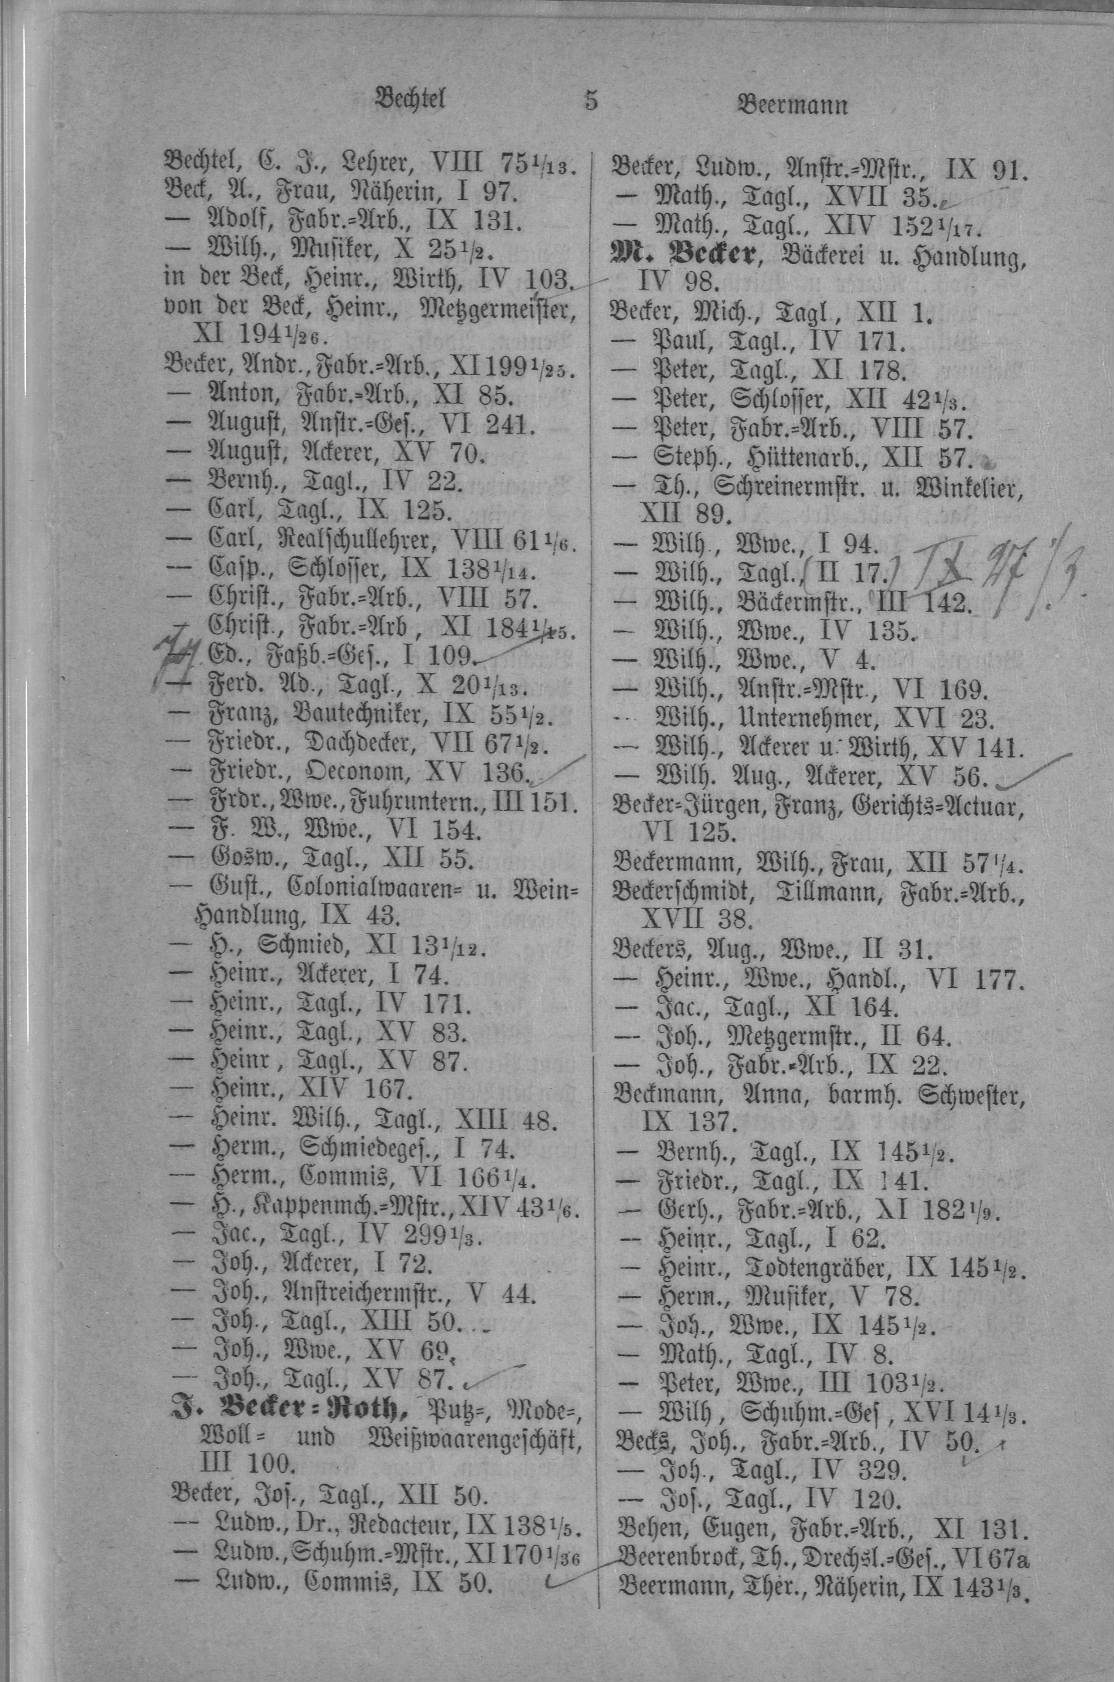 Bechtel 5 Beermann
Bechtel, C. J., Lehrer, VIII 75 1/13.
Beck, A., Frau, Näherin, I 97.
— Adolf, Fabr.=Arb., IX 131.
— Wilh., Musiker, X 25 1/2.
in der Beck, Heinr., Wirth, IV 103.
von der Beck, Heinr., Metzgermeister,
XI 194 1/26.
Becker, Andr., Fabr.=Arb., XI 199 1/25.
— Anton, Fabr.=Arb., XI 85.
— August, Anstr.=Ges., VI 241.
— August, Ackerer, XV 70.
— Bernh., Tagl., IV 22.
— Carl, Tagl., IX 125.
— Carl, Realschullehrer, VIII 61 1/6.
— Casp., Schlosser, IX 138 1/14.
— Christ., Fabr.=Arb., VIII 57.
— Christ., Fabr.=Arb, XI 184 1/15.
— Ed., Faßb.=Ges., I 109.
— Ferd. Ad., Tagl., X 20 1/13.
— Franz, Bautechniker, IX 55 1/2.
— Friedr., Dachdecker, VII 67 1/2.
— Friedr., Oeconom, XV 136.
— Frdr., Wwe., Fuhruntern., III 151.
— F. W., Wwe., VI 154.
— Gosw., Tagl., XII 55.
— Gust., Colonialwaaren= u. Wein=
Handlung, IX 43.
— H., Schmied, XI 13 1/12.
— Heinr., Ackerer, I 74.
— Heinr., Tagl., IV 171.
— Heinr., Tagl., XV 83.
— Heinr, Tagl., XV 87.
— Heinr., XIV 167.
— Heinr. Wilh., Tagl., XIII 48.
— Herm., Schmiedeges., I 74.
— Herm., Commis, VI 166 1/4.
— H., Kappenmch.=Mstr., XIV 43 1/6.
— Jac., Tagl., IV 299 1/3.
— Joh., Ackerer, I 72.
— Joh., Anstreichermstr., V 44.
— Joh., Tagl., XIII 50.
— Joh., Wwe., XV 69.
— Joh., Tagl., XV 87.
J. Becker=Roth, Putz=, Mode=,
Woll= und Weißwaarengeschäft,
III 100.
Becker, Jos., Tagl., XII 50.
— Ludw., Dr., Redacteur, IX 138 1/5.
— Ludw., Schuhm.=Mstr., XI 170 1/36
— Ludw., Commis, IX 50.
Becker, Ludw., Anstr.=Mstr., IX 91.
— Math., Tagl., XVII 35.
— Math., Tagl., XIV 152 1/17.
M. Becker, Bäckerei u. Handlung,
IV 98.
Becker, Mich., Tagl, XII 1.
— Paul, Tagl., IV 171.
— Peter, Tagl., XI 178.
— Peter, Schlosser, XII 42 1/3.
— Peter, Fabr.=Arb., VIII 57.
— Steph., Hüttenarb., XII 57.
— Th., Schreinermstr. u. Winkelier,
XII 89.
— Wilh., Wwe., I 94.
— Wilh., Tagl., II 17. IX 27 1/3.
— Wilh., Bäckermstr., III 142.
— Wilh., Wwe., IV 135.
— Wilh., Wwe., V 4.
— Wilh., Anstr.=Mstr., VI 169.
— Wilh., Unternehmer, XVI 23.
— Wilh., Ackerer u. Wirth, XV 141.
— Wilh. Aug., Ackerer, XV 56.
Becker=Jürgen, Franz, Gerichts=Actuar,
VI 125.
Beckermann, Wilh., Frau, XII 57 1/4.
Beckerschmidt, Tillmann, Fabr.=Arb.,
XVII 38.
Beckers, Aug., Wwe., II 31.
— Heinr., Wwe., Handl., VI 177.
— Jac., Tagl., XI 164.
— Joh., Metzgermstr., II 64.
— Joh., Fabr.=Arb., IX 22.
Beckmann, Anna, barmh. Schwester,
IX 137.
— Bernh., Tagl., IX 145 1/2.
— Friedr., Tagl., IX 141.
— Gerh., Fabr.=Arb., XI 182 1/9.
— Heinr., Tagl., I 62.
— Heinr., Todtengräber, IX 145 1/2.
— Herm., Musiker, V 78.
— Joh., Wwe., IX 145 1/2.
— Math., Tagl., IV 8.
— Peter, Wwe., III 103 1/2.
— Wilh, Schuhm.=Ges, XVI 14 1/3.
Becks, Joh., Fabr.=Arb., IV 50.
— Joh., Tagl., IV 329.
— Jos., Tagl., IV 120.
Behen, Eugen, Fabr.=Arb., XI 131.
Beerenbrock, Th., Drechsl.=Ges., VI 67a
Beermann, Ther., Näherin, IX 143 1/3.